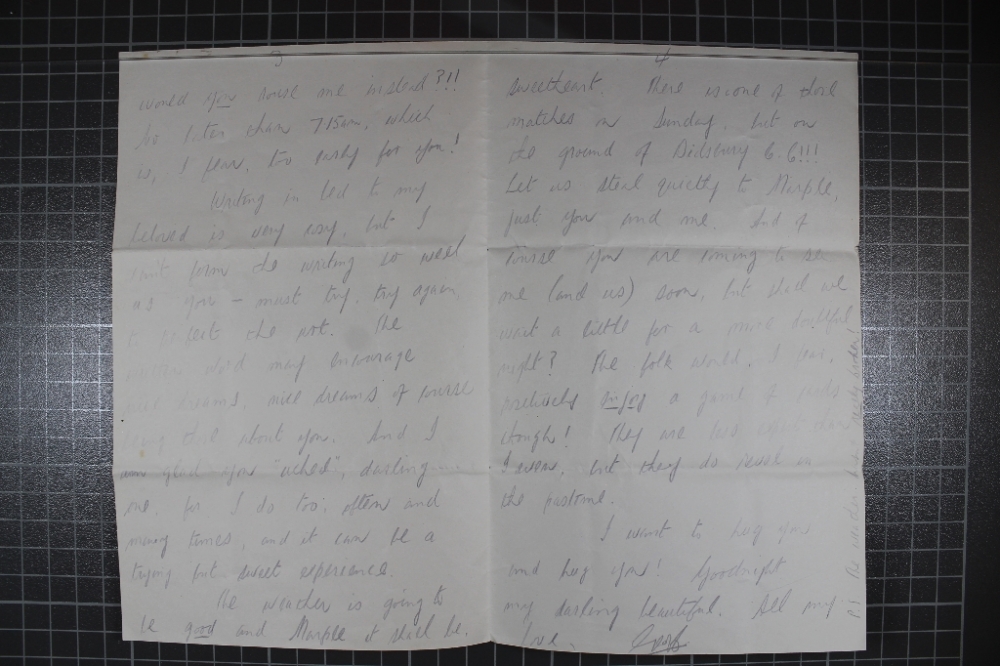 3
would you rouse me instead?!!
No later than 7.15am, which
is, I fear, too early for you!
Writing in bed to my
beloved is very easy, but I
can't form the writing so well
as you – must try, try again,
to perfect the art. The
written word may encourage
nice dreams, nice dreams of course
being those about you. And I
am glad you "ached", darling
one, for I do too, often and
many times, and it can be a
trying but sweet experience.
The weather is going to
be good and Marple it shall be.
4
sweetheart. There is one of those
matches on Sunday, but on
the ground of Didsbury C.C!!!
Let us steal quietly to Marple,
just you and me. And of
course you are coming to see
me (and us) soon, but shall we
wait a little for a more doubtful
night? The folk would, I fear,
enjoy a game of cards
though! They are less expert than
I even, but they do revel in
the pastime.
I want to hug you
and hug you! Goodnight
my darling beautiful. All my
love,
P.S. The